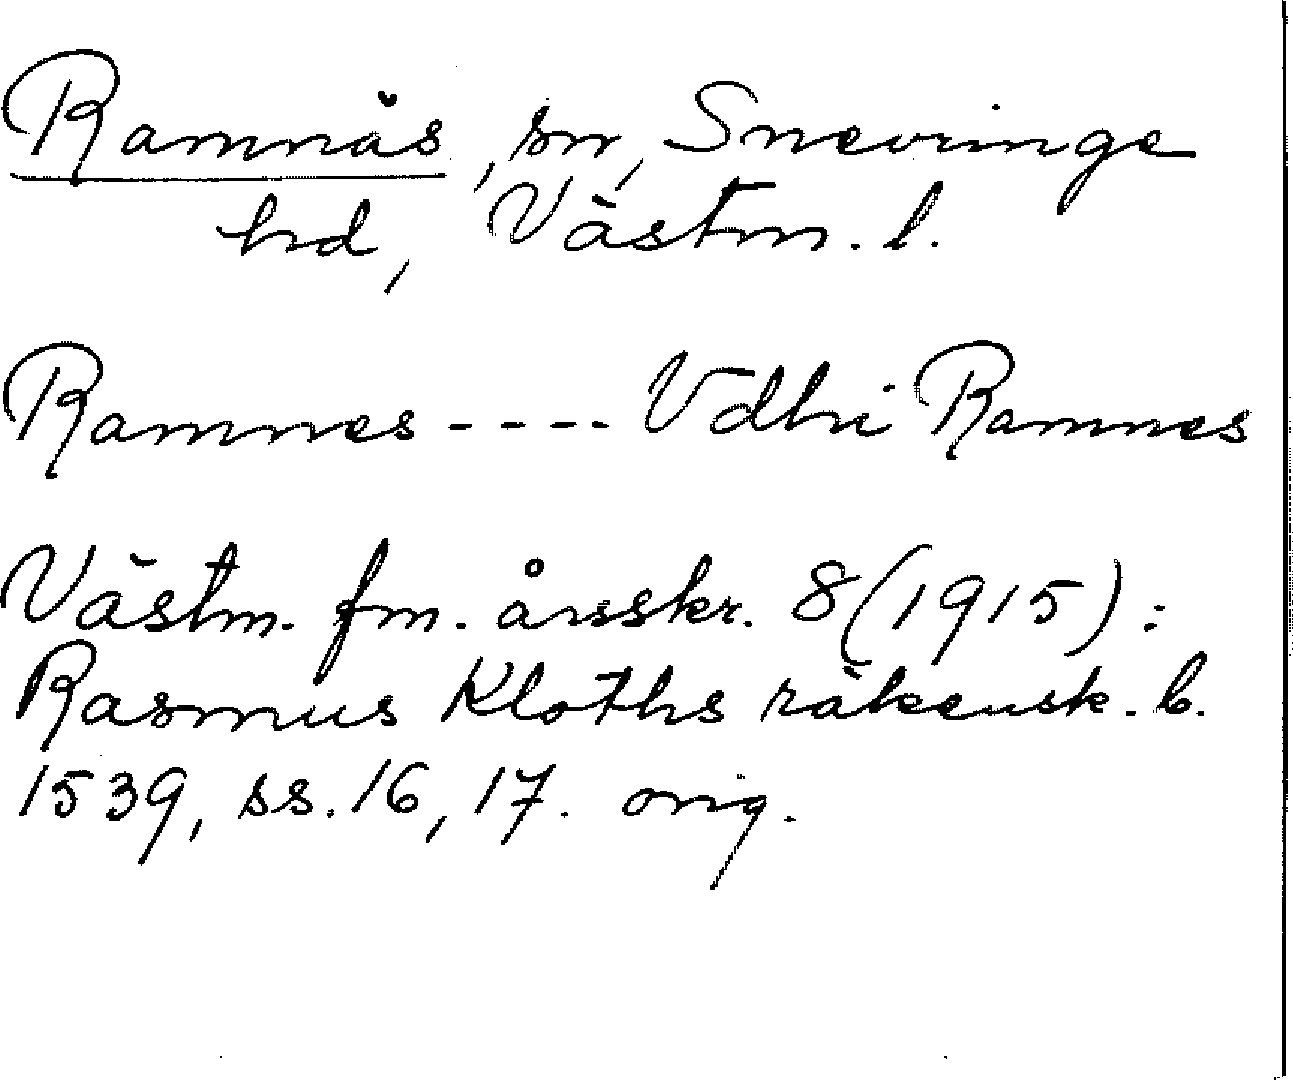 Ramnäs, sn, Snevringe
hd, Västm. l.
Ramnes ---- Vdhi Ramnes
Västm. fm. årsskr. 8 (1915):
Rasmus Kloths räkensk. b.
1539, ss. 16, 17. orig.